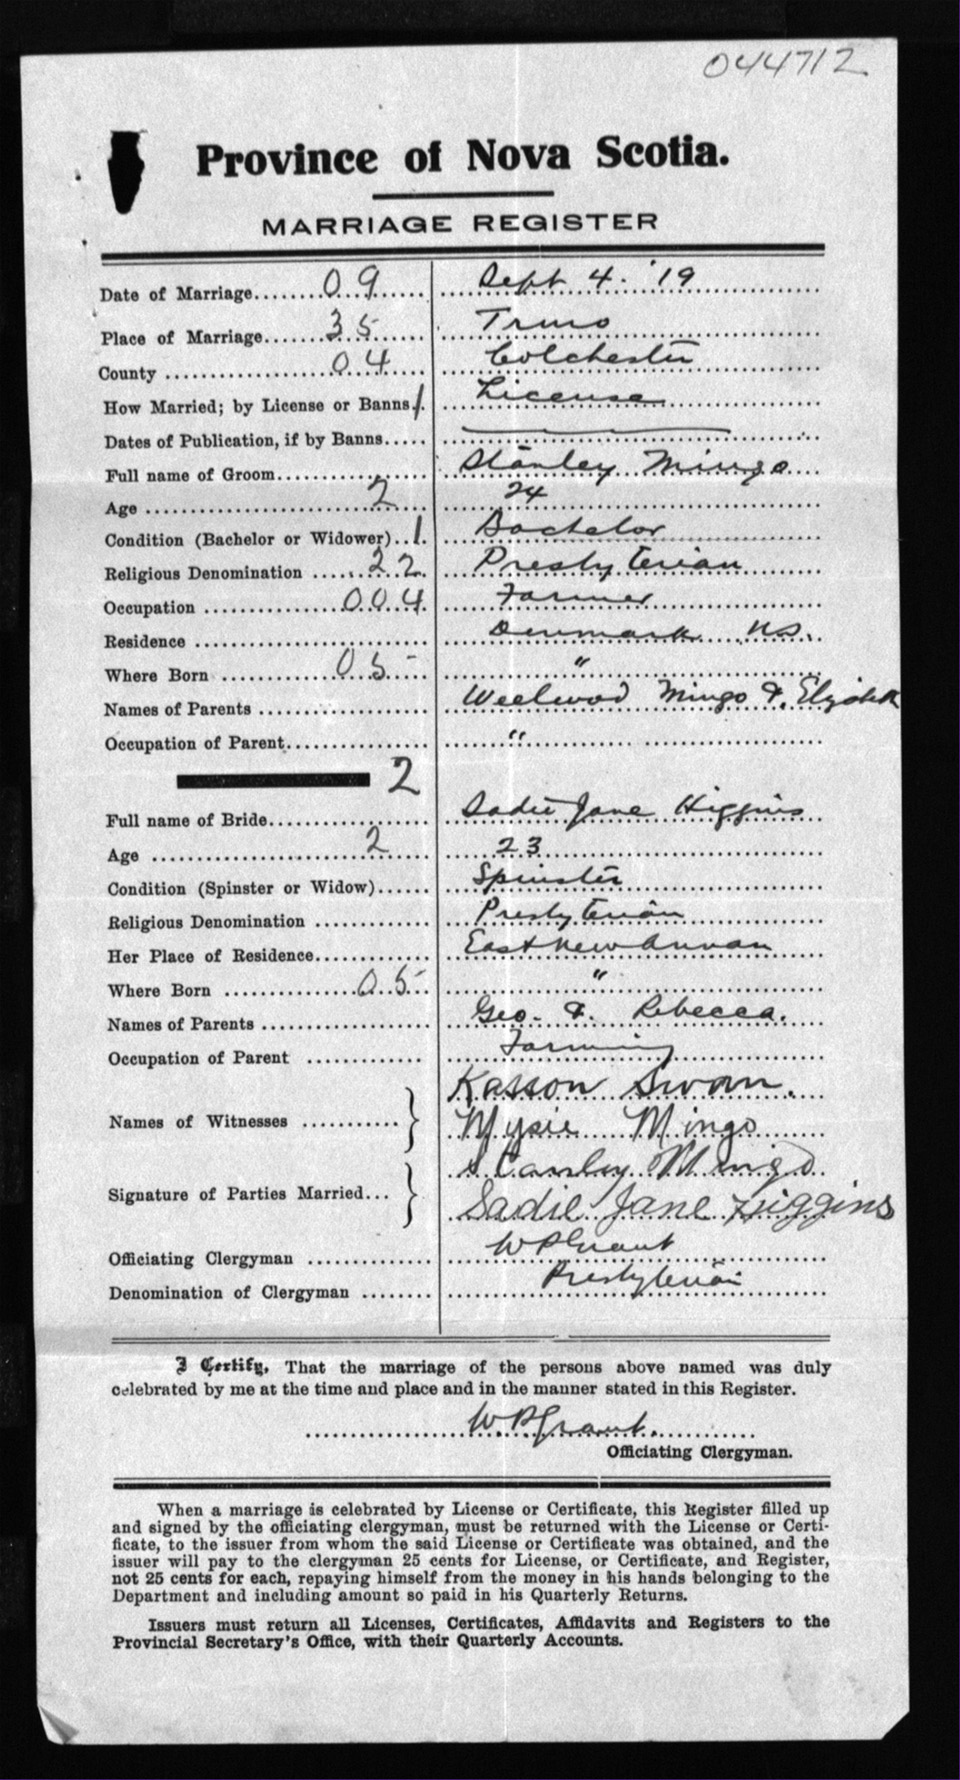 044712
Province of Nova Scotia.
MARRIAGE REGISTER
Date of Marriage........ 09 Sept 4. '19
Place of Marriage....... 35 Truro
County ........ 04 Colchester
How Married; by License or Banns. 1. License
Dates of Publication, if by Banns.....
Full name of Groom........ Stanley Mingo
Age ........ 2 24
Condition (Bachelor or Widower).. 1. Bachelor
Religious Denomination ..... 22 Presbyterian
Occupation ........ 004 Farmer
Residence ........ Denmark NS.
Where Born ........ 05 "
Names of Parents ........ Mingo & Elizabeth
Occupation of Parent........ "
2
Full name of Bride........ Sadie Jane Higgins
Age ........ 2 23
Condition (Spinster or Widow)...... Spinster
Religious Denomination ........ Presbyterian
Her Place of Residence........ East New Annan
Where Born ........ 05 "
Names of Parents ........ Geo. & Rebecca.
Occupation of Parent ........ Farming
Kasson Swan.
Names of Witnesses ........ }
Mysie Mingo
Stanley Mingo
Signature of Parties Married... }
Sadie Jane Higgins
Officiating Clergyman ........ W P Grant
Denomination of Clergyman ........ Presbyterian
I Certify, That the marriage of the persons above named was duly
celebrated by me at the time and place and in the manner stated in this Register.
W P Grant.
Officiating Clergyman.
When a marriage is celebrated by License or Certificate, this Register filled up
and signed by the officiating clergyman, must be returned with the License or Certi-
ficate, to the issuer from whom the said License or Certificate was obtained, and the
issuer will pay to the clergyman 25 cents for License, or Certificate, and Register,
not 25 cents for each, repaying himself from the money in his hands belonging to the
Department and including amount so paid in his Quarterly Returns.
Issuers must return all Licenses, Certificates, Affidavits and Registers to the
Provincial Secretary's Office, with their Quarterly Accounts.